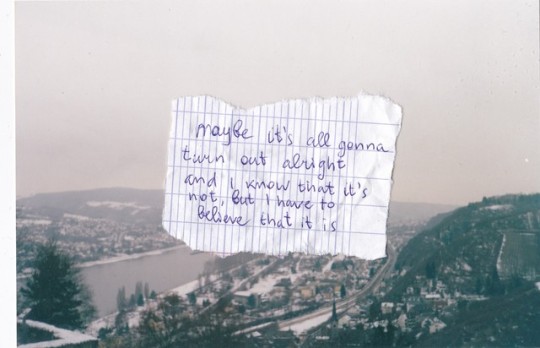 maybe it's all gonna
turn out alright
and I know that it's
not, but I have to
believe that it is